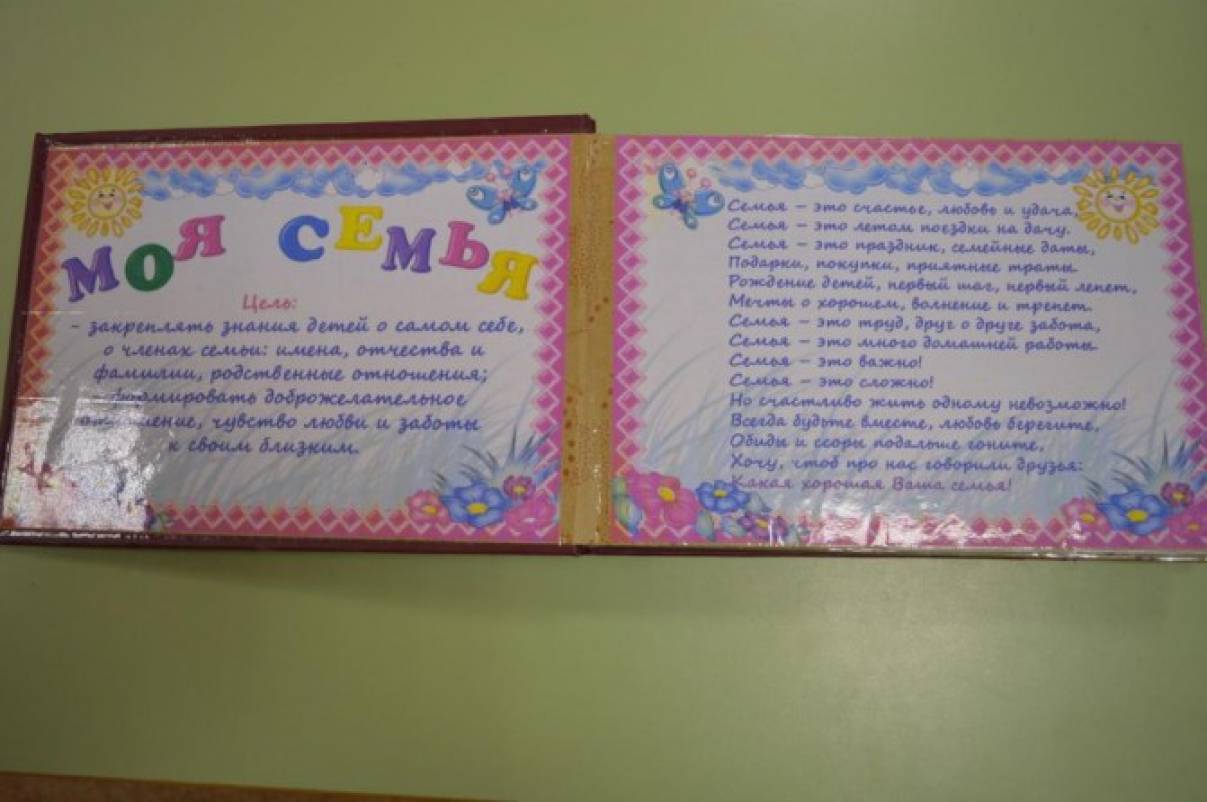 МОЯ СЕМЬЯ
Цель:
- закреплять знания детей о самом себе,
о членах семьи: имена, отчества и
фамилии, родственные отношения;
формировать доброжелательное
отношение, чувство любви и заботы
к своим близким.
Семья – это счастье, любовь и удача,
Семья – это летом поездки на дачу.
Семья – это праздник, семейные даты,
Подарки, покупки, приятные траты.
Рождение детей, первый шаг, первый лепет,
Мечты о хорошем, волнение и трепет.
Семья – это труд, друг о друге забота,
Семья – это много домашней работы.
Семья – это важно!
Семья – это сложно!
Но счастливо жить одному невозможно!
Всегда будьте вместе, любовь берегите,
Обиды и ссоры подальше гоните,
Хочу, чтоб про нас говорили друзья:
Какая хорошая Ваша семья!